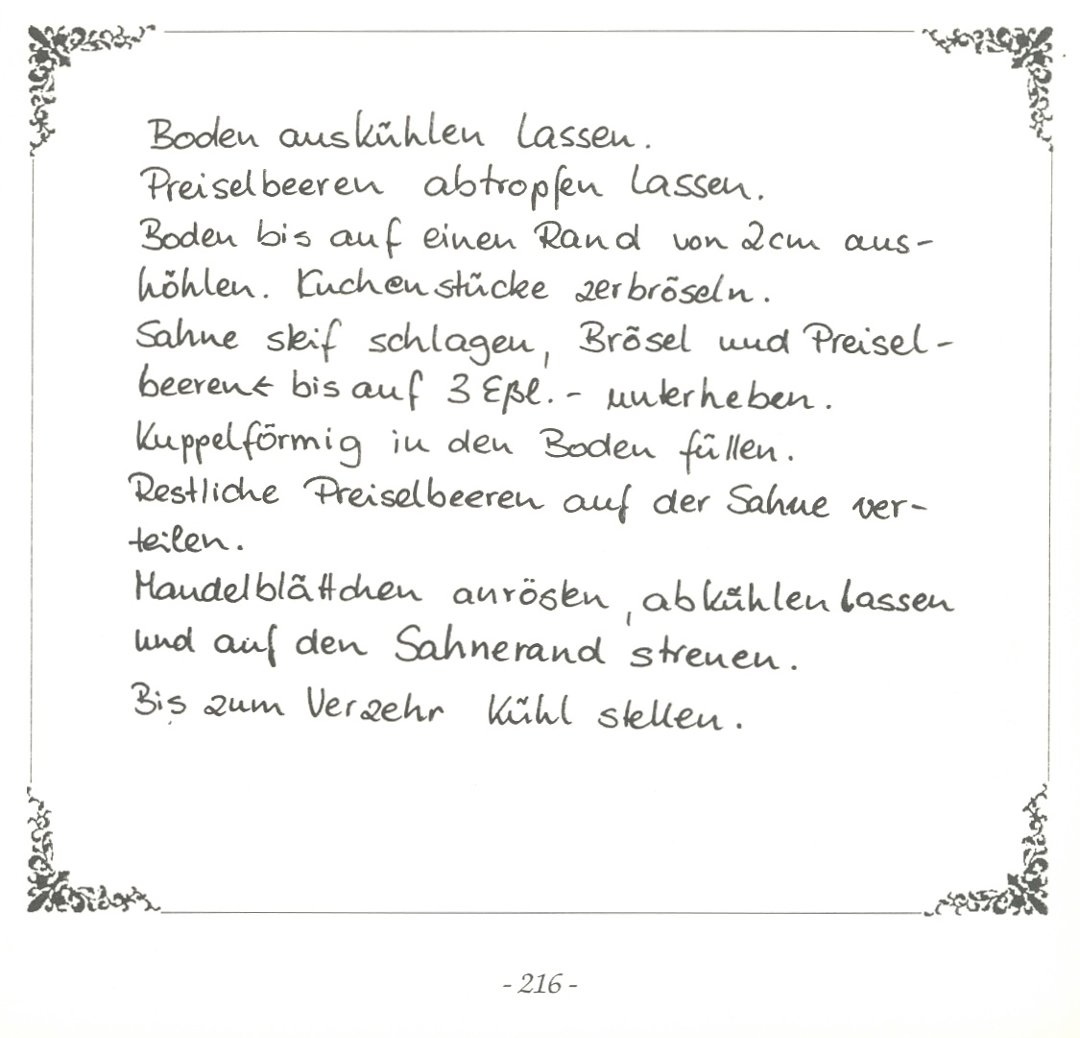 Boden auskühlen lassen.
Preiselbeeren abtropfen lassen.
Boden bis auf einen Rand von 2cm aus-
höhlen. Kuchenstücke zerbröseln.
Sahne steif schlagen, Brösel und Preisel-
beeren - bis auf 3 Eßl. - unterheben.
Kuppelförmig in den Boden füllen.
Restliche Preiselbeeren auf der Sahne ver-
teilen.
Mandelblättchen anrösten, abkühlen lassen
und auf den Sahnerand streuen.
Bis zum Verzehr kühl stellen.
- 216 -